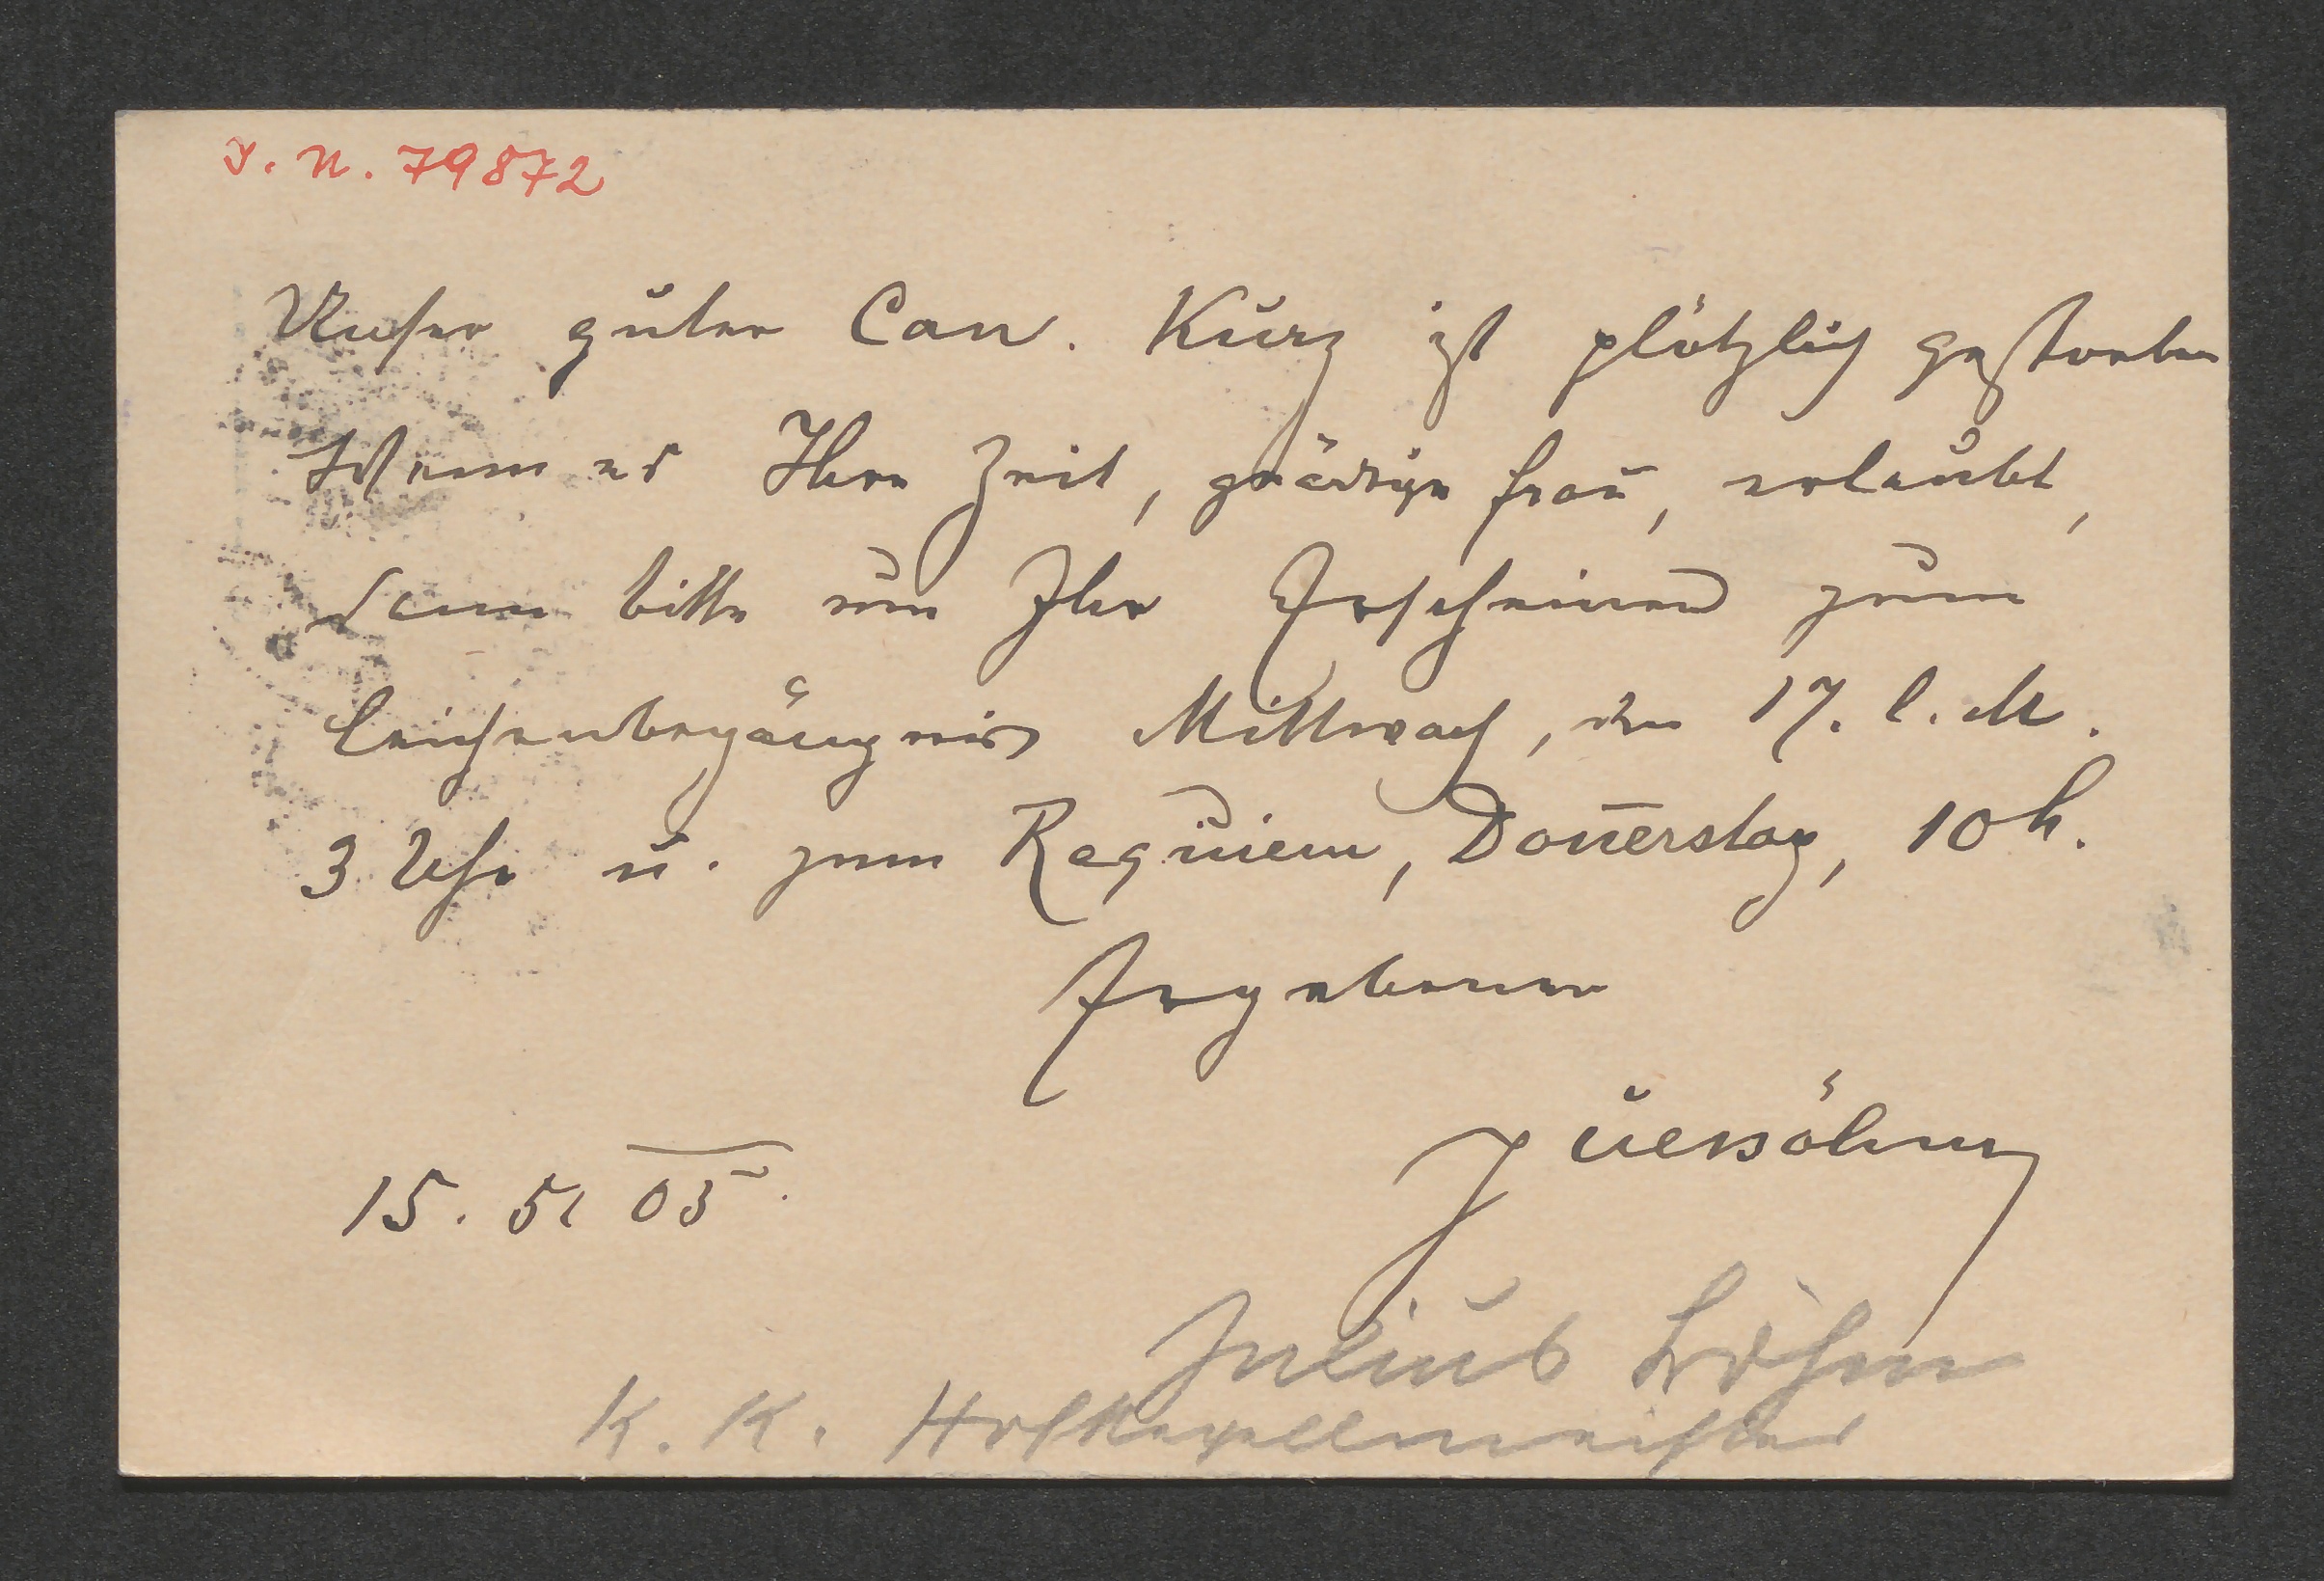 I. N. 79872
Unser guter Can. Kurz ist plötzlich gestorben
Wenn es Ihre Zeit, gnädige Frau, erlaubt,
dann bitte um Ihr Erscheinen zum
Leichenbegängnis Mittwoch, den 17. l. M.
3 Uhr u. zum Requiem, Don̄erstag, 10 h.
Ergebener
15. 5. 05.
Julius Böhm
K. K. Hofkapellmeister